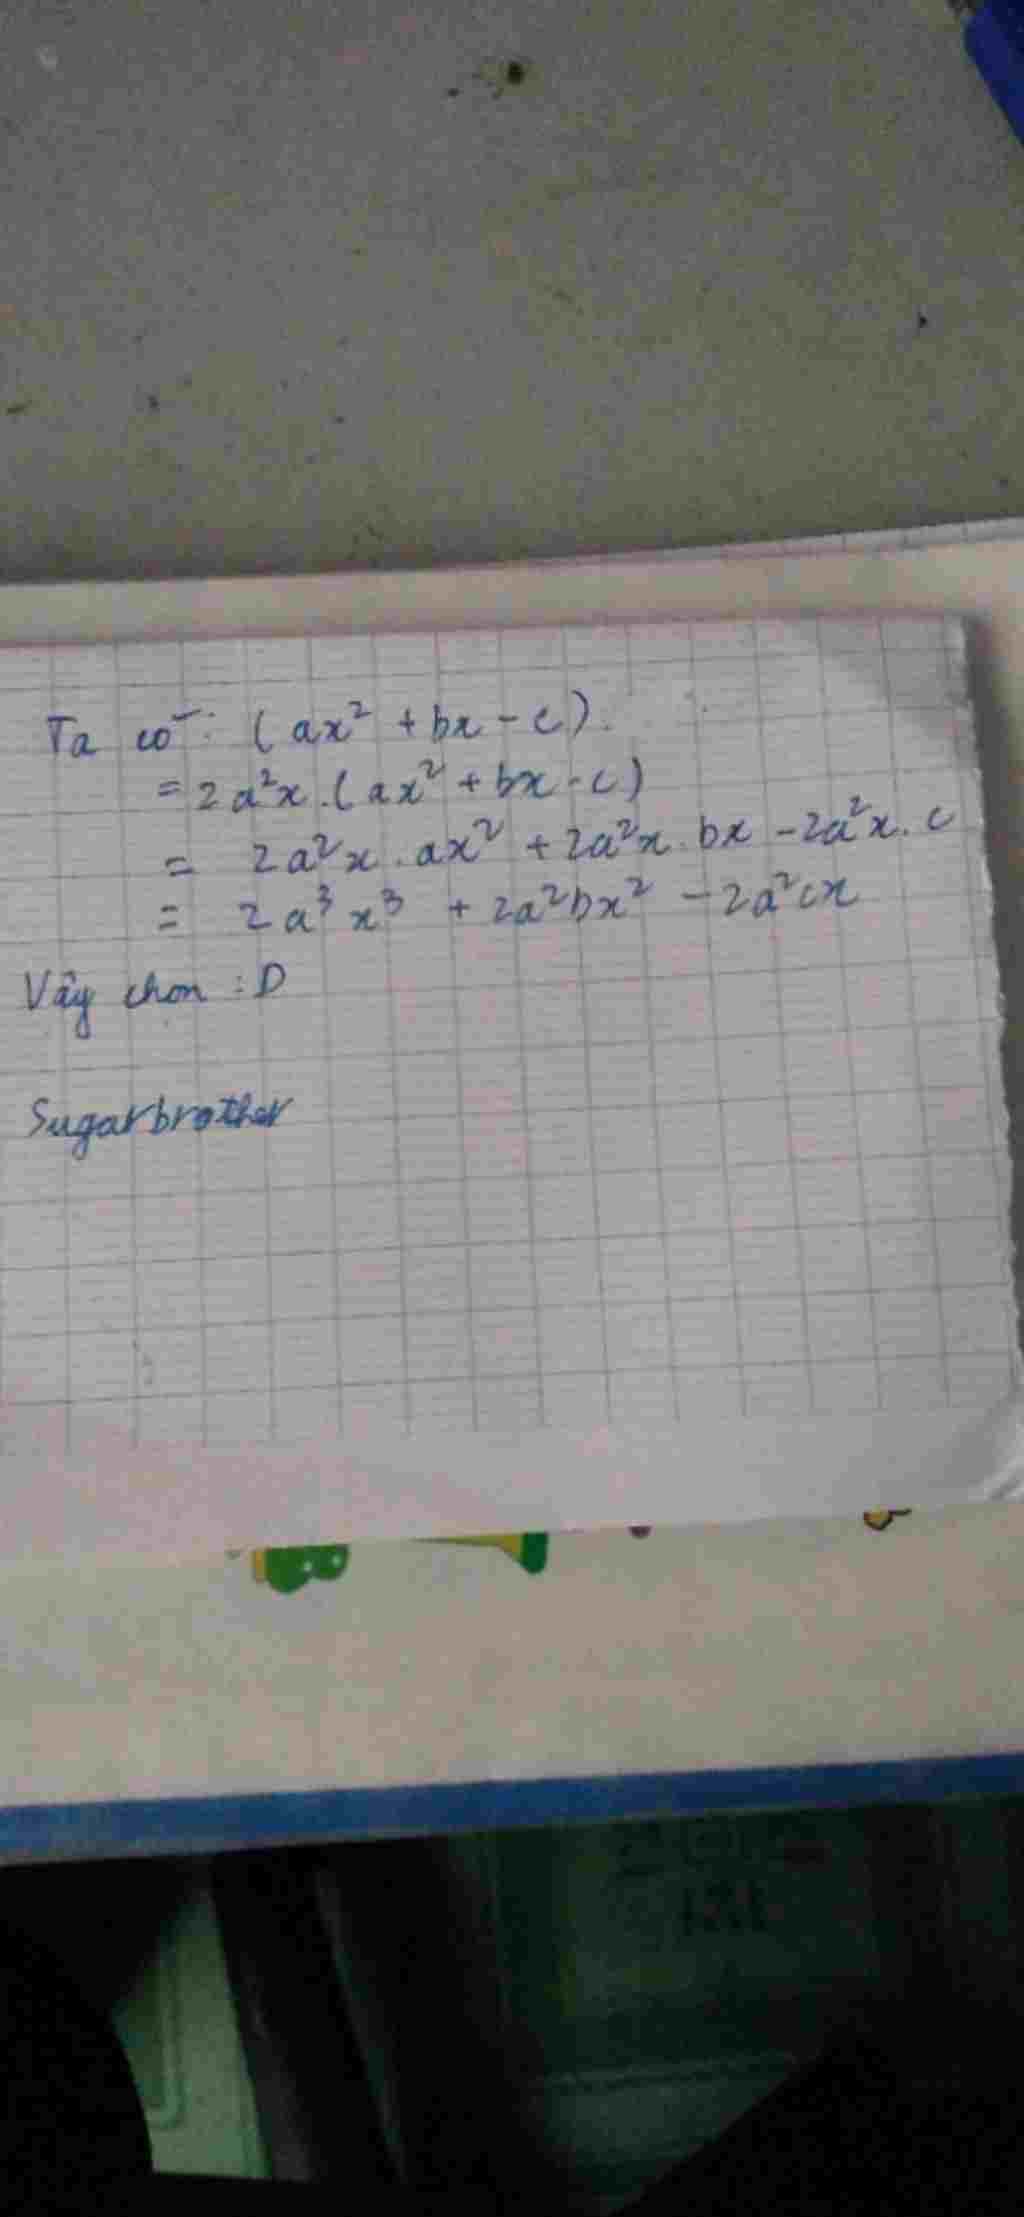 Ta có: (ax² + bx - c).
= 2a²x.(ax² + bx - c)
= 2a²x.ax² + 2a²x.bx - 2a²x.c
= 2a³x³ + 2a²bx² - 2a²cx
Vậy chon : D
Sugarbrother